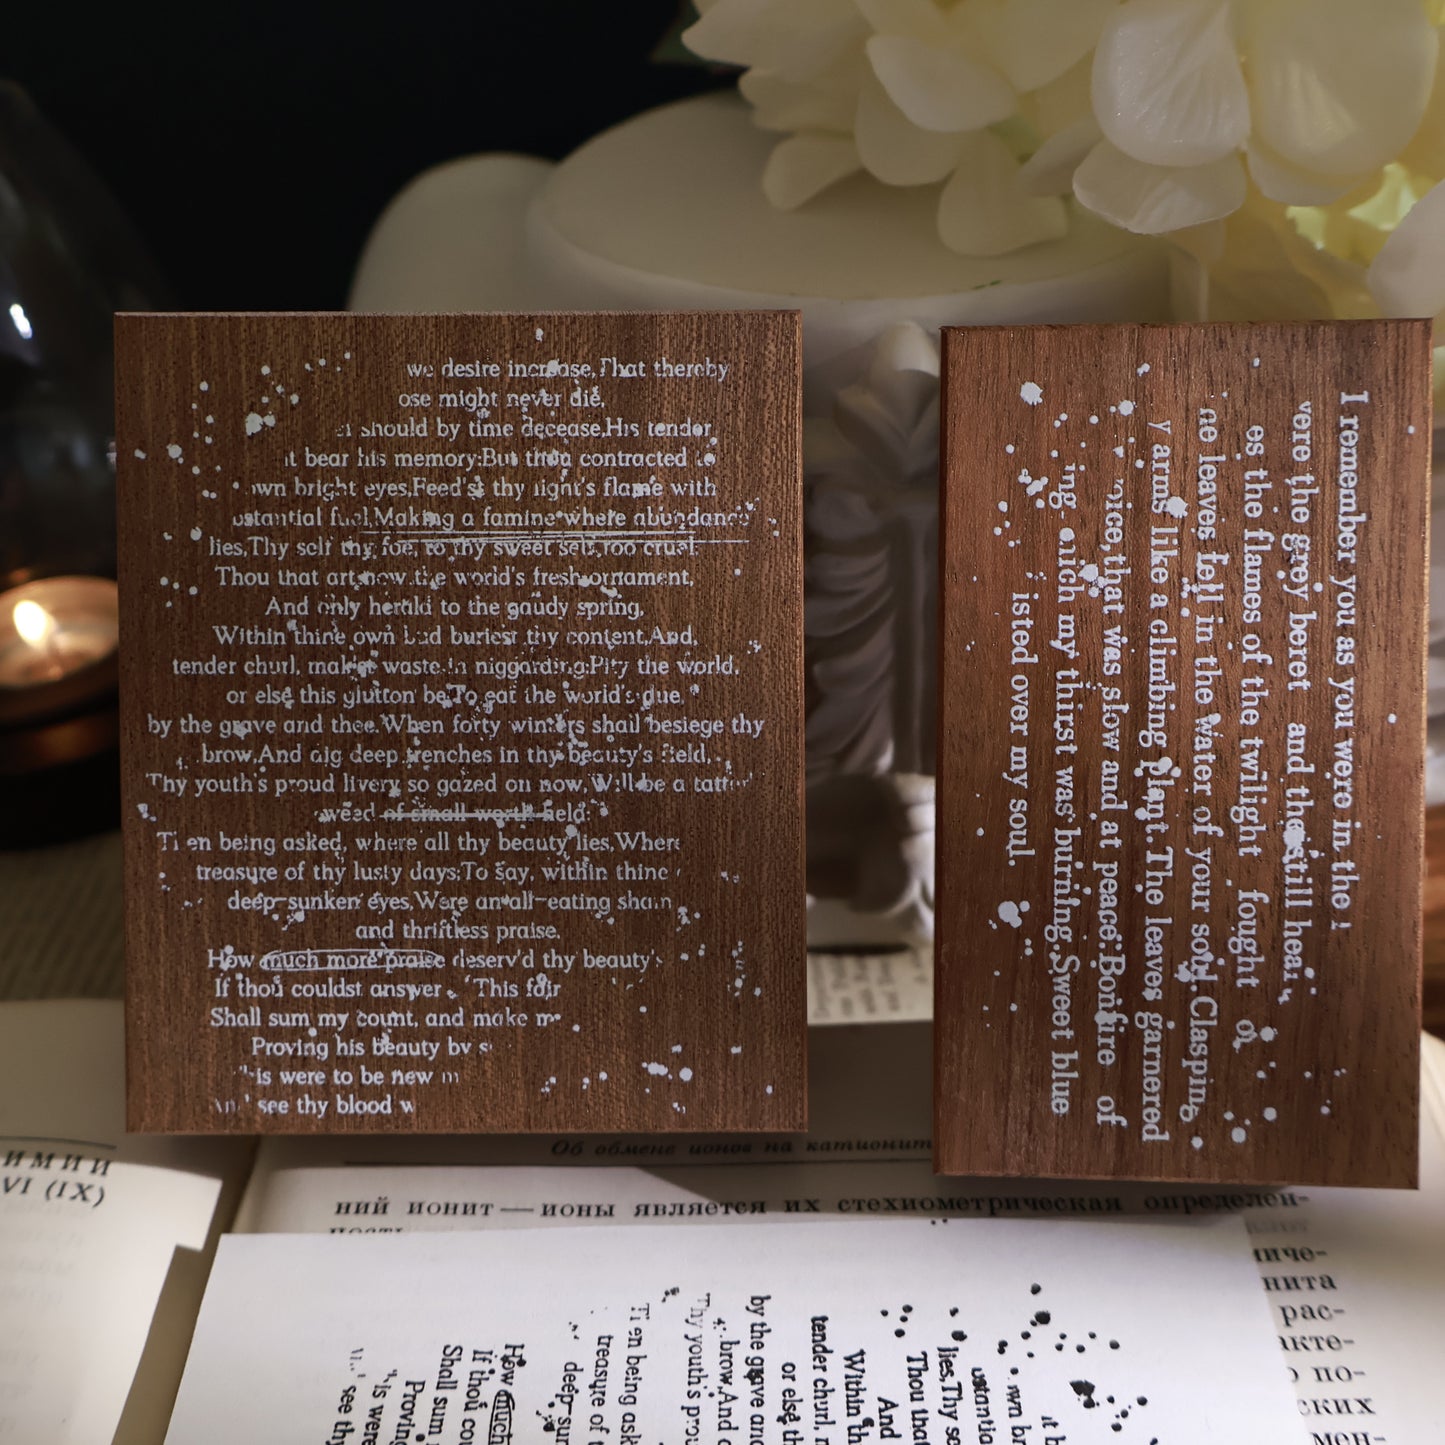 we desire increase,That thereby
ose might never die,
should by time decease,His tender
t bear his memory:But thou contracted to
wn bright eyes,Feed'st thy light's flame with
ustantial fuel,Making a famine where abundance
lies,Thy self thy foe, to thy sweet self too cruel:
Thou that art now the world's fresh ornament,
And only herald to the gaudy spring,
Within thine own bud buriest thy content,And,
tender churl, mak'st waste in niggarding:Pity the world,
or else this glutton be,To eat the world's due,
by the grave and thee.When forty winters shall besiege thy
brow,And dig deep trenches in thy beauty's field,
Thy youth's proud livery so gazed on now,Will be a tatter'
weed of small worth field:
T en being asked, where all thy beauty lies,Where
treasure of thy lusty days;To say, within thine
deep-sunken eyes,Were an all-eating sham
and thriftless praise.
How much more praise deserv'd thy beauty's
If thou couldst answer 'This fair
Shall sum my count, and make m
Proving his beauty by s
is were to be new m
see thy blood w
I remember you as you were in the
vere the grey beret and the still hear
es the flames of the twilight fought o
he leaves fell in the water of your soul.Clasping
y arms like a climbing plant.The leaves garnered
voice,that was slow and at peace:Bonfire of
ing which my thirst was burning.Sweet blue
isted over my soul.
ИМИИ
VI (IX)
Об обмене ионов на катионит
ний ионит — ионы является их стехиометрическая определен-
ность
миче-
нита
рас-
акте-
о по-
ских
мен-
t b
wn br
ustantia
lies,Thy se
Thou that
And
Within th
tender churl, m
or else th
by the grave and
brow,And d
Thy youth's pro
Ti en being ask
treasure of t
deep-sun
How much
If thou cou
Shall sum
Proving
is were
see thy